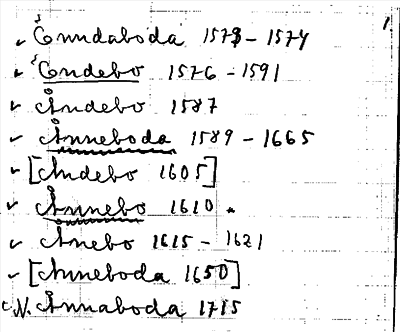 1.
✓ Önndaboda 1573–1574
✓ Öndebo 1576–1591
✓ Åndebo 1587
✓ Ånneboda 1589–1665
✓ [Andebo 1605]
✓ Ånnebo 1610.
✓ Anebo 1615–1621
✓ [Anneboda 1650]
N. Ånnaboda 1715